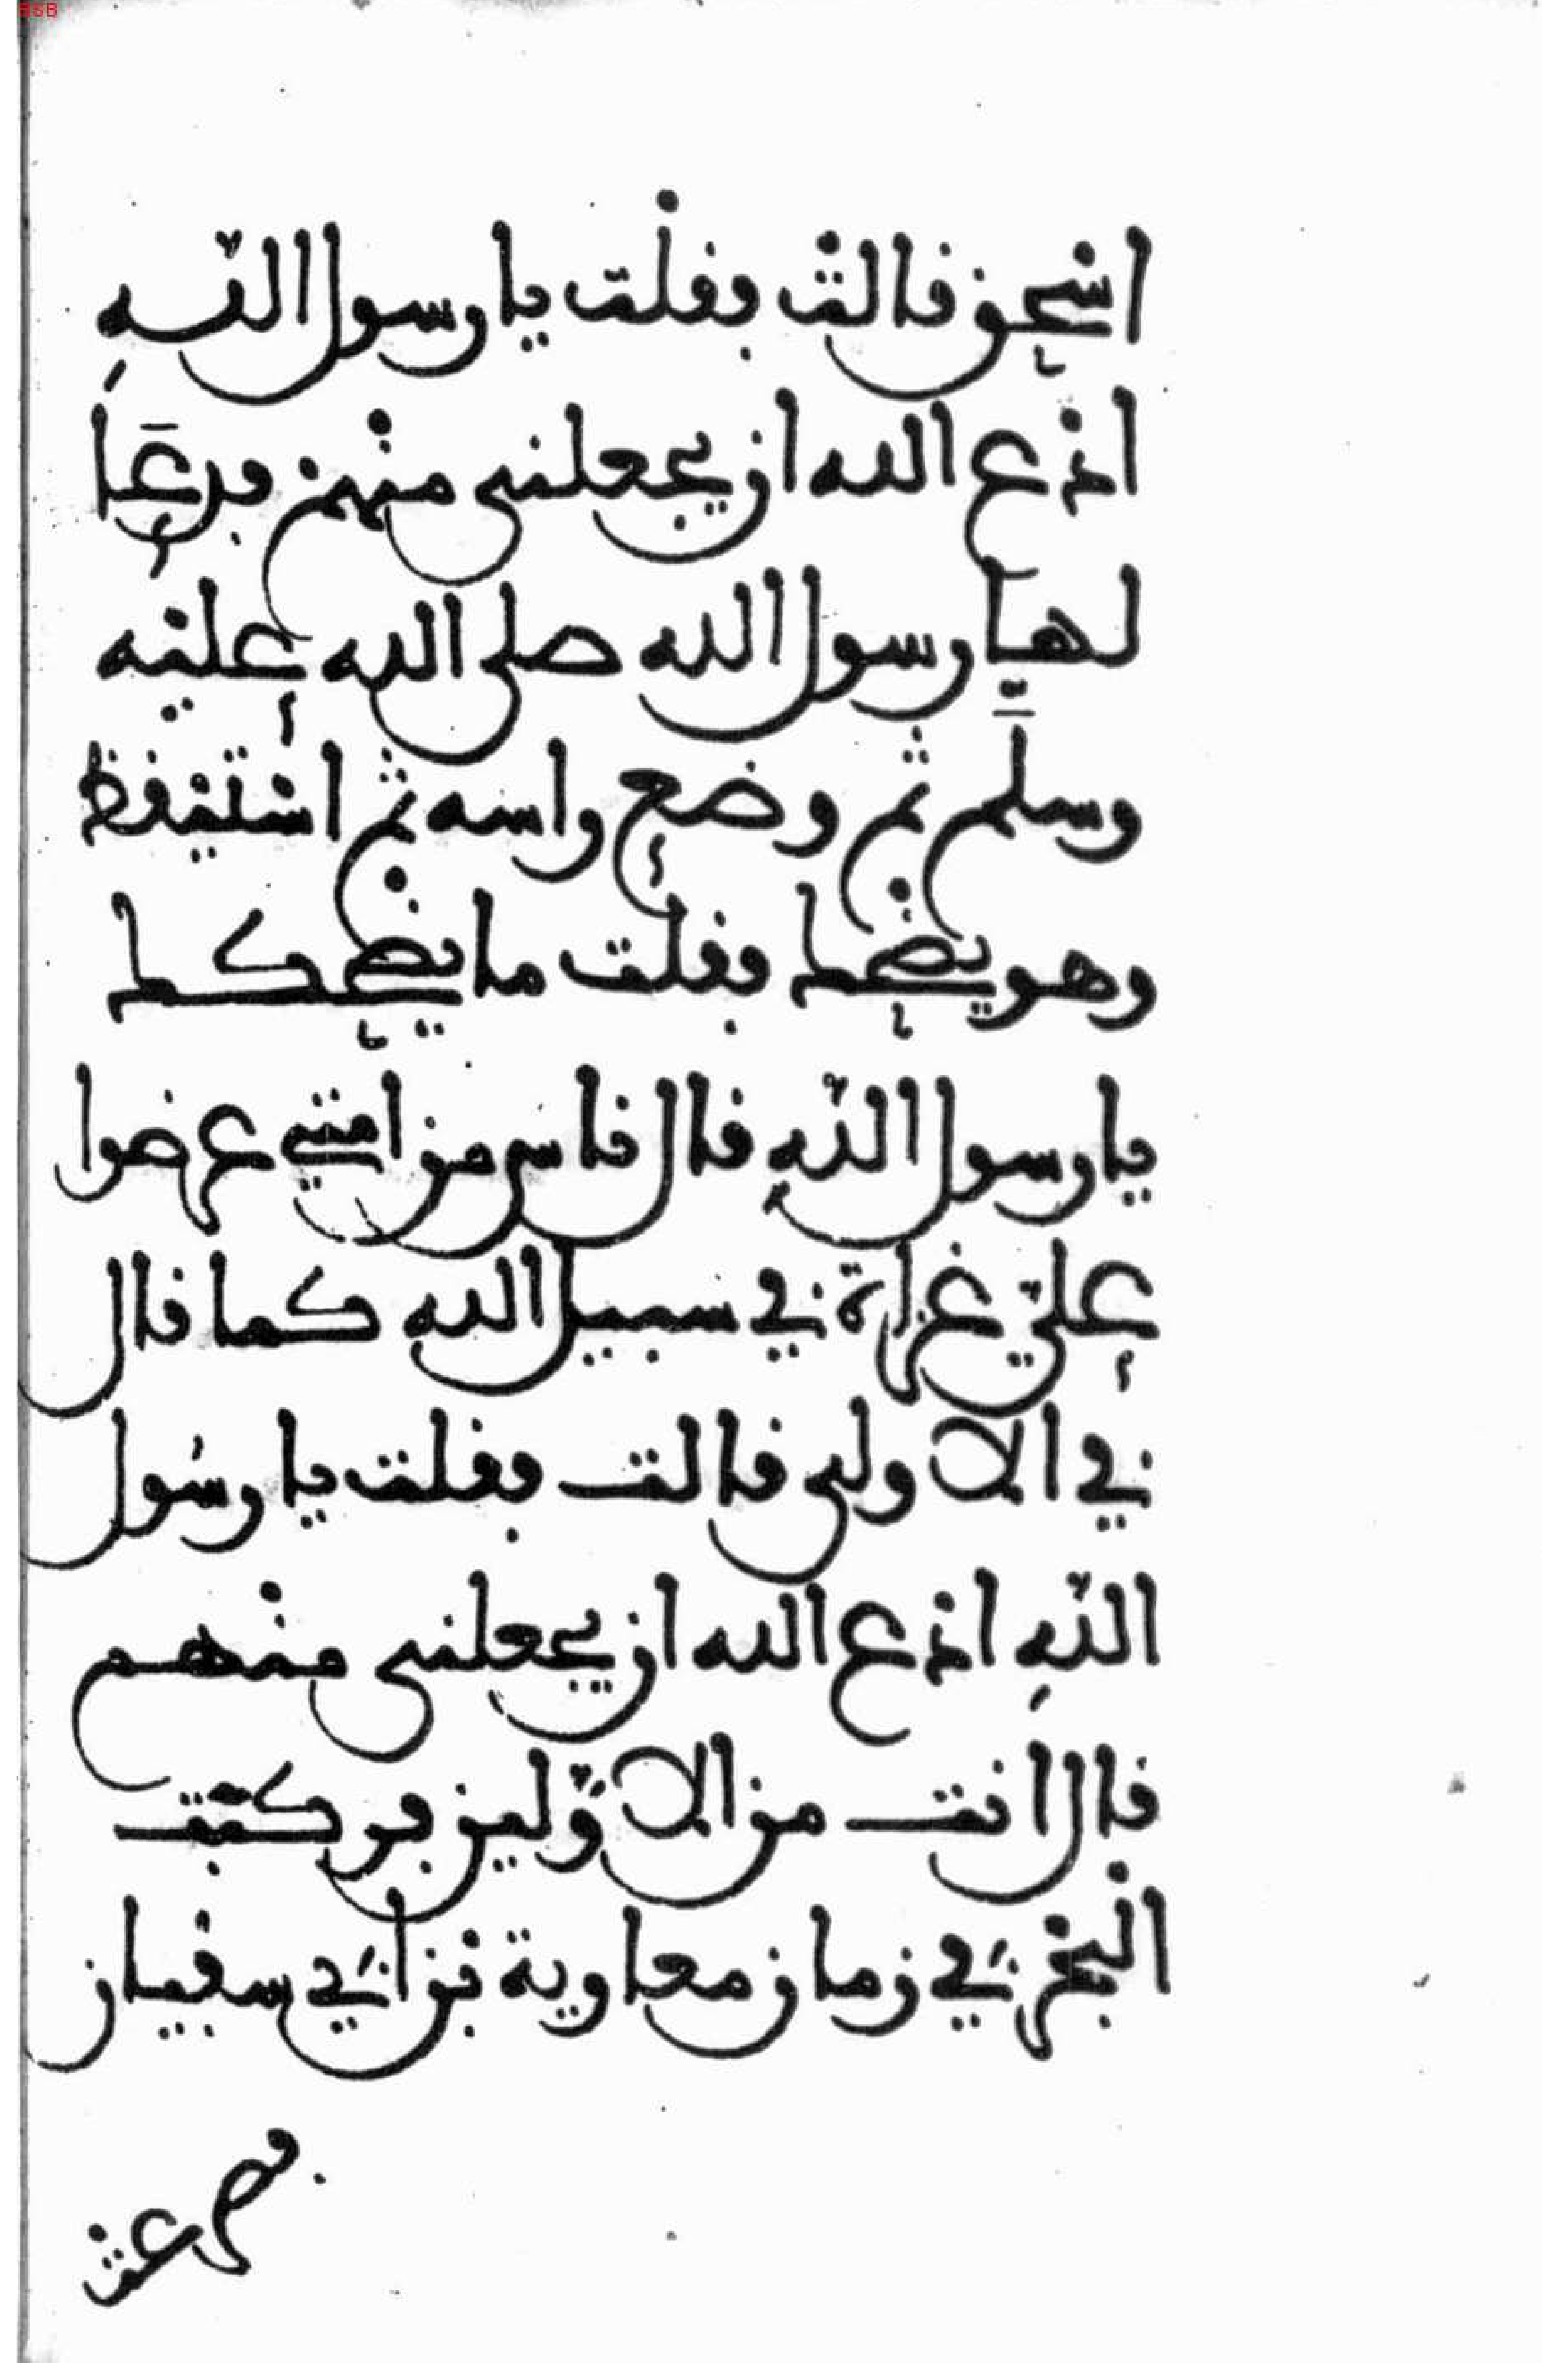 اسحق قالت فقلت يا رسول الله
ادع الله ان يجعلنى منهم فدعا
لها رسول الله صلى الله عليه
وسلم ثم وضع راسه ثم استيقظ
وهو يضحك فقلت ما يضحكك
يا رسول الله قال ناس من امتي عرضوا
علي غزاة في سبيل الله كما قال
في الاولى قالت فقلت يا رسول
الله ادع الله ان يجعلنى منهم
قال انت من الاولين فركبت
البحر في زمان معاوية بن ابي سفيان
فصرعت
BSB